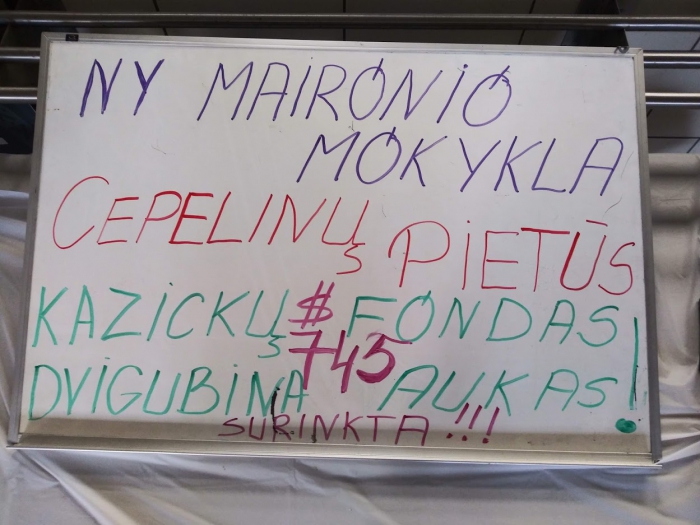 NY MAIRONIO
MOKYKLA
CEPELINŲ PIETŪS
KAZICKŲ $ FONDAS
745
DVIGUBINA AUKAS!
SURINKTA!!!